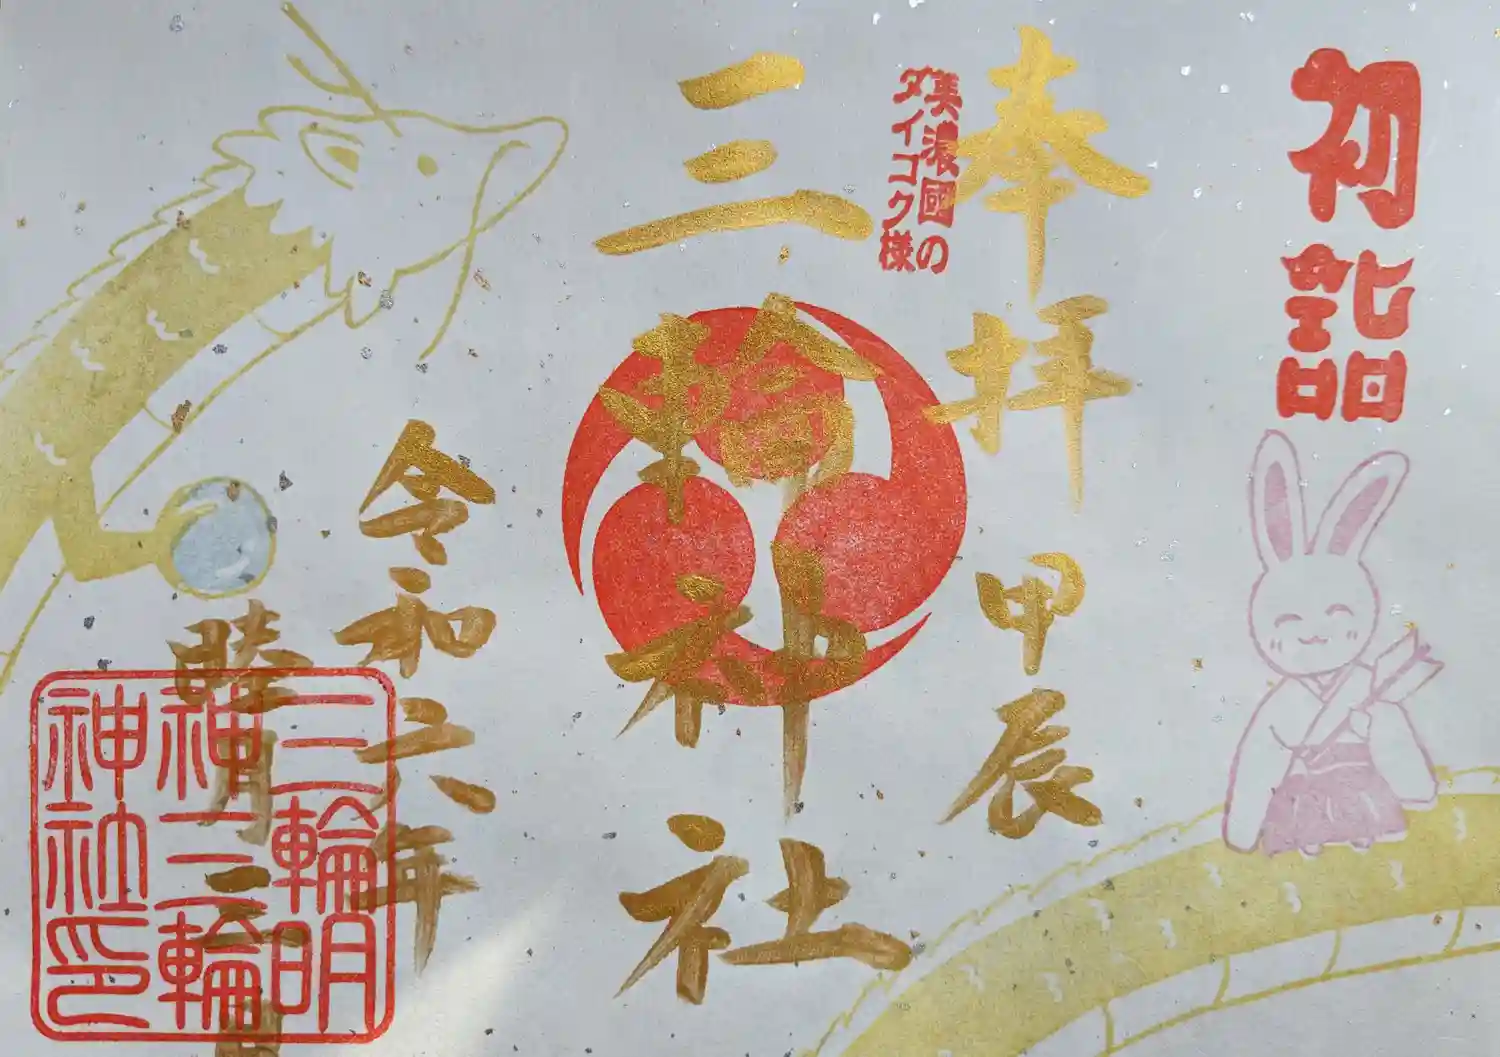 初詣
奉拝 甲辰
美濃國の
ダイコク様
三輪神社
令和六年
睦月三日
三輪明
神三輪
神社印